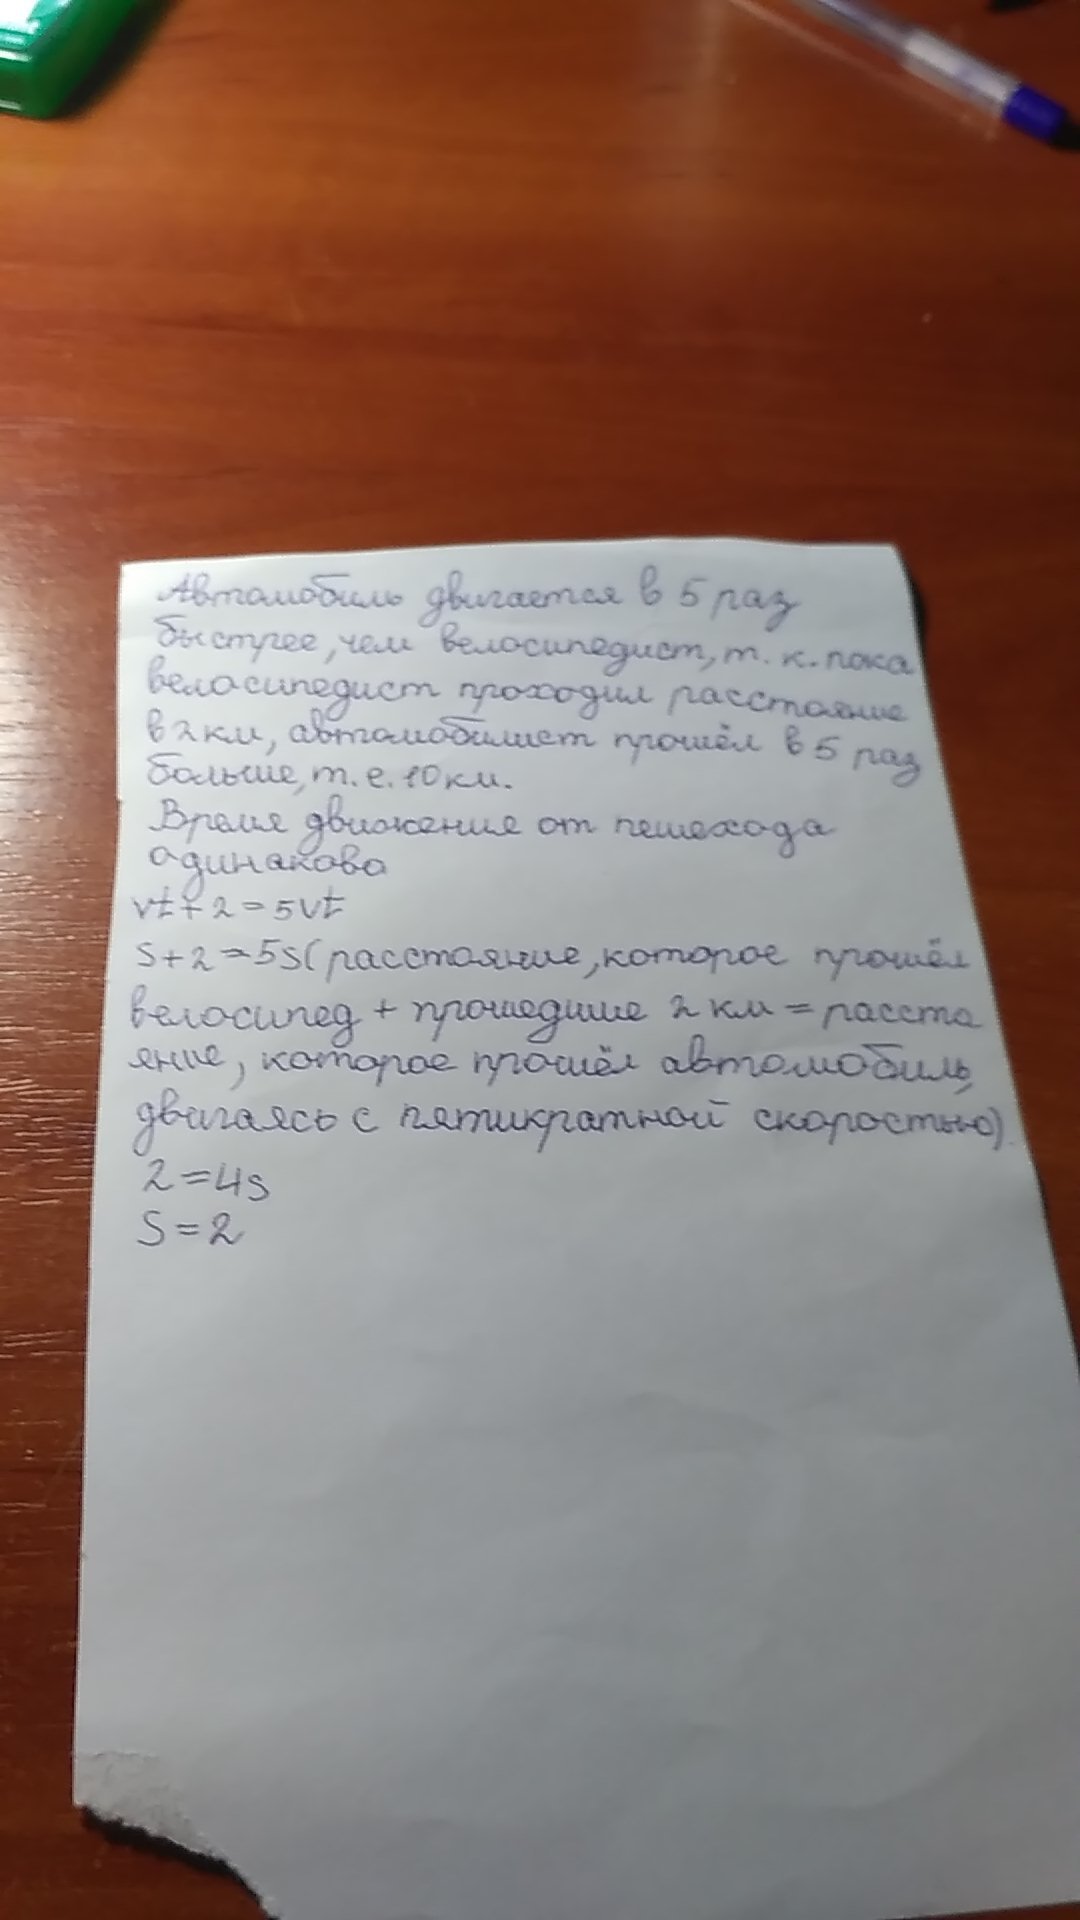 Автомобиль двигается в 5 раз
быстрее, чем велосипедист, т. к. пока
велосипедист проходил расстояние
в 2 км, автомобилист прошёл в 5 раз
больше, т. е. 10 км.
Время движения от пешехода
одинаково
vt + 2 = 5vt
S + 2 = 5S (расстояние, которое прошёл
велосипед + прошедшие 2 км = расста
яние, которое прошёл автомобиль,
двигаясь с пятикратной скоростью).
2 = 4S
S = 2